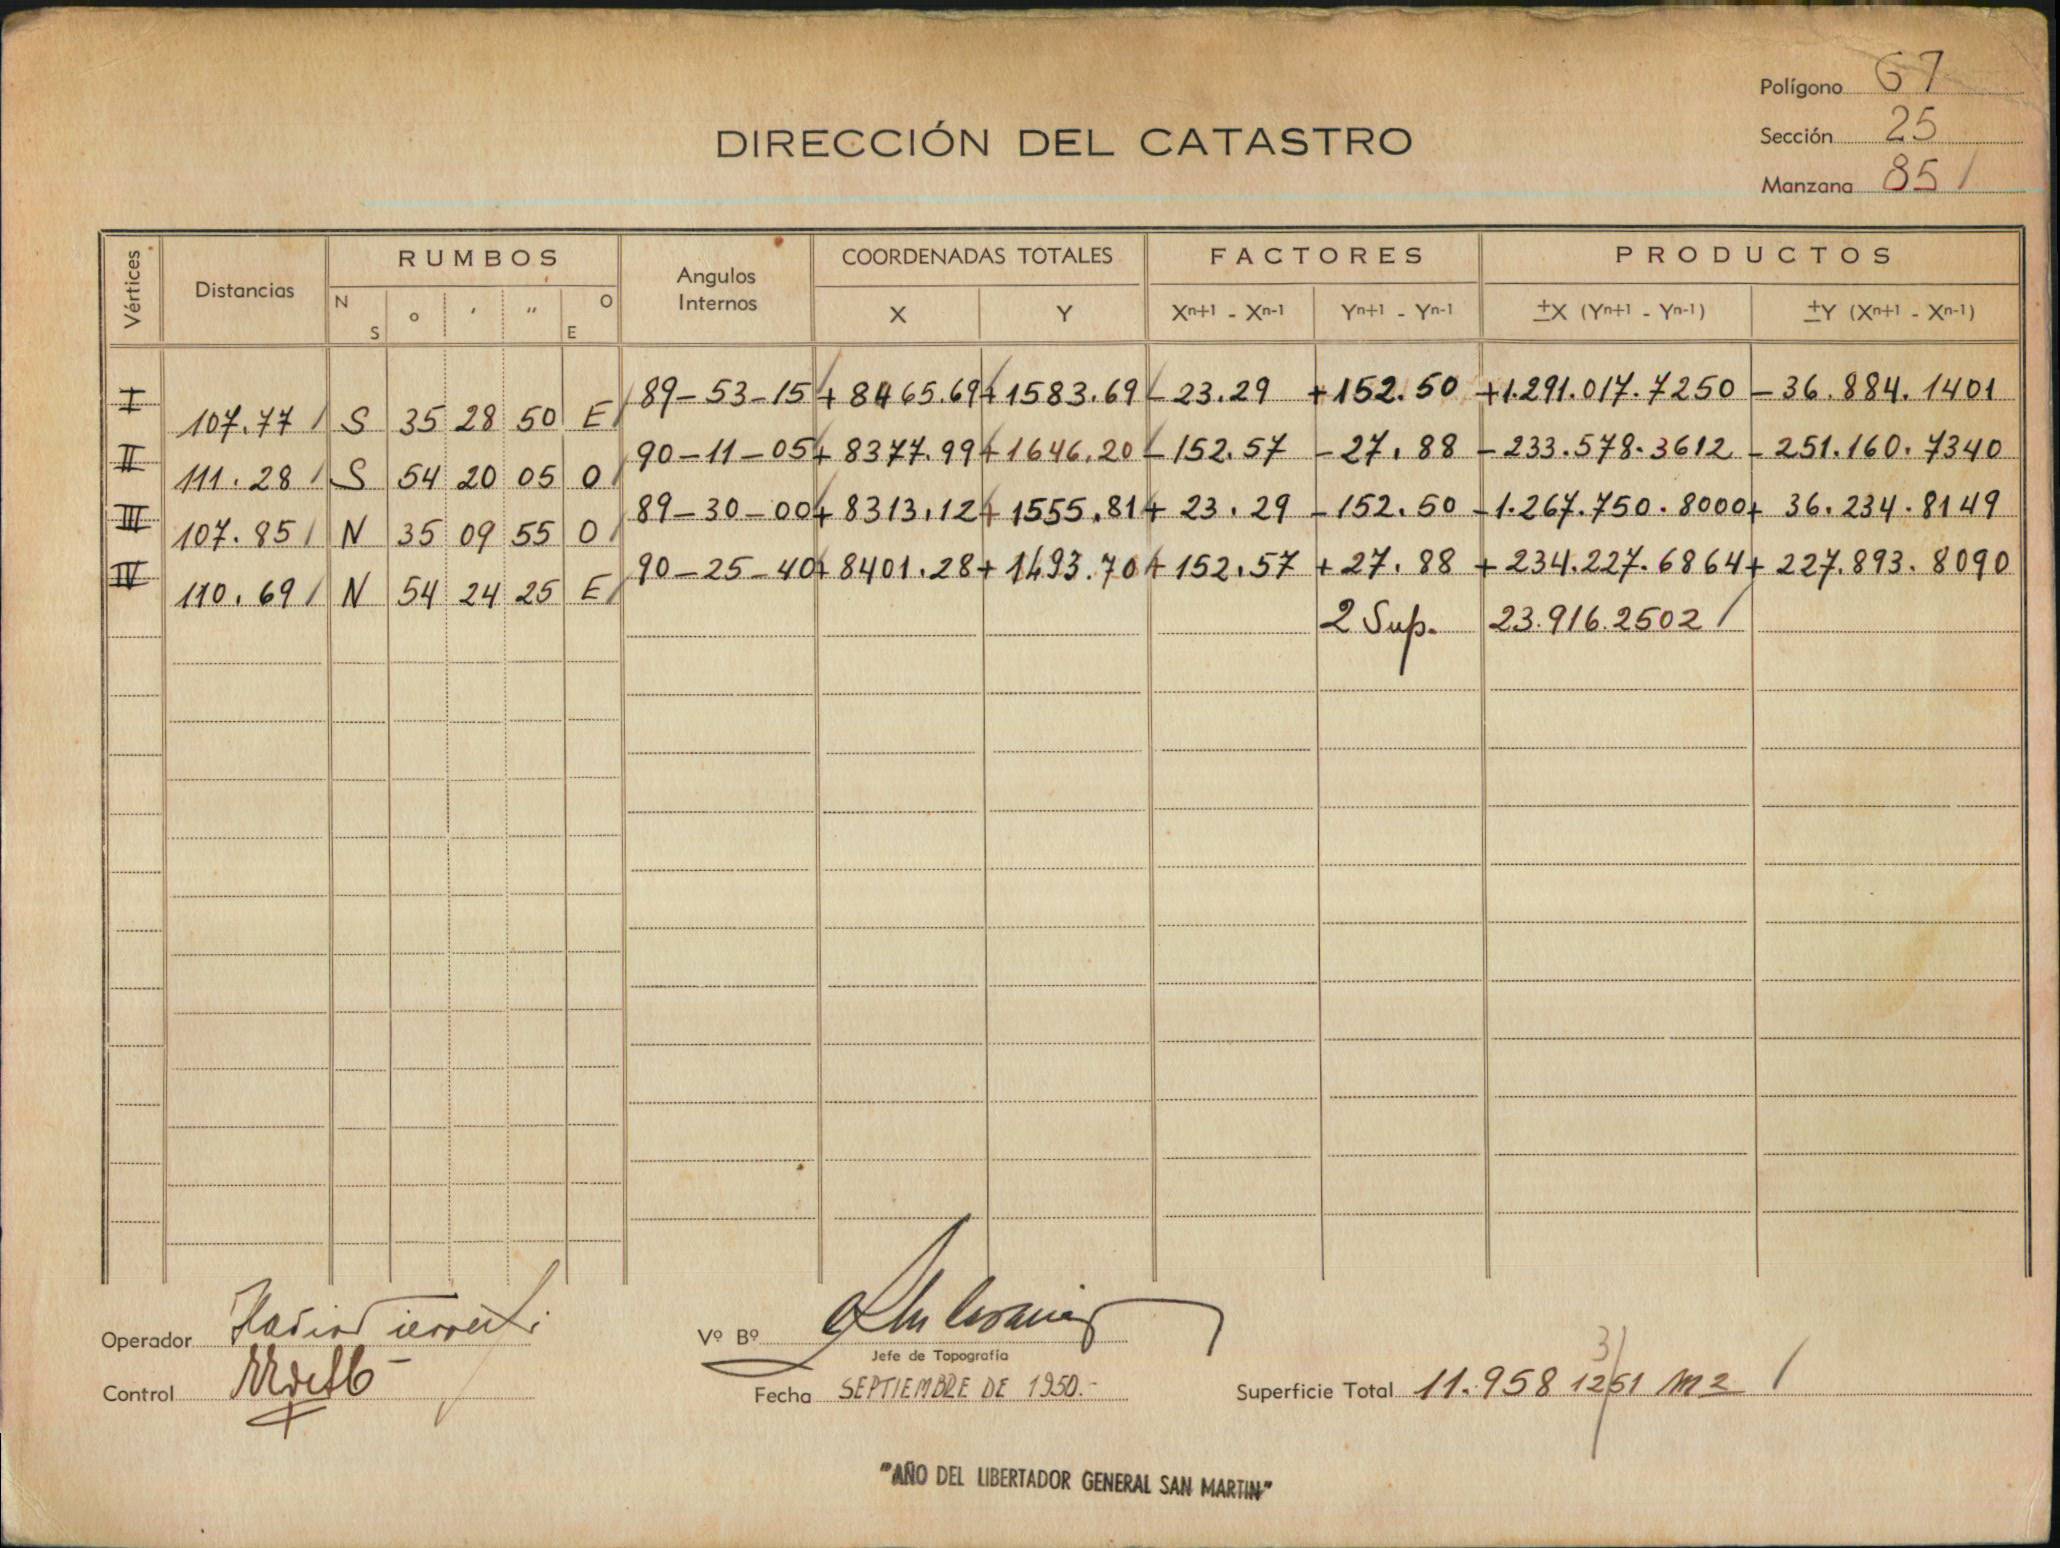 Polígono 67
DIRECCIÓN DEL CATASTRO
Sección 25
Manzana 85 /
Vértices Distancias RUMBOS Angulos Internos COORDENADAS TOTALES FACTORES PRODUCTOS
N S o ' " O E X Y Xn+1 - Xn-1 Yn+1 - Yn-1 ±X (Yn+1 - Yn-1) ±Y (Xn+1 - Xn-1)
I 89-53-15 +8465.69 +1583.69 -23.29 +152.50 +1.291.017.7250 -36.884.1401
107.77 / S 35 28 50 E/
II 90-11-05 +8377.99 +1646.20 -152.57 -27.88 -233.578.3612 -251.160.7340
111.28 / S 54 20 05 O/
III 89-30-00 +8313.12 +1555.81 +23.29 -152.50 -1.267.750.8000 +36.234.8149
107.85 / N 35 09 55 O/
IV 90-25-40 +8401.28 +1493.70 +152.57 +27.88 +234.227.6864 +227.893.8090
110.69 / N 54 24 25 E/
2 Sup. 23.916.2502 /
Operador
Vº Bº
Jefe de Topografía
Control
Fecha SEPTIEMBRE DE 1950.-
Superficie Total 11.958 1251 m2 /
3
"AÑO DEL LIBERTADOR GENERAL SAN MARTIN"